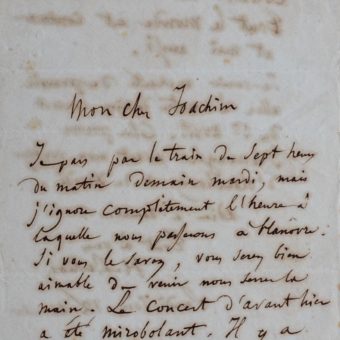 Mon cher Joachim
Je pars par le train de sept heures
du matin demain mardi, mais
j'ignore complètement l'heure à
laquelle nous passerons à hanovre.
Si vous le savez, vous serez bien
aimable de venir nous serrer la
main. Le Concert d'avant hier
a été mirobolant. Il y a